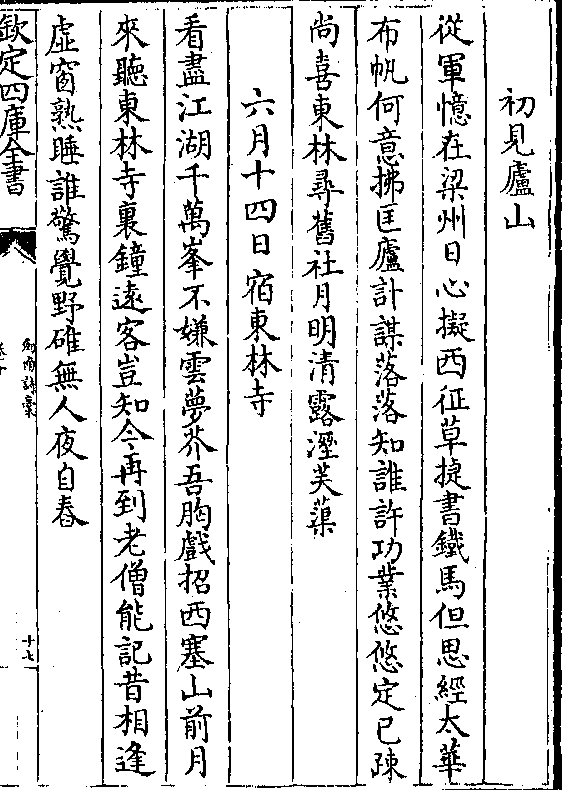 初見廬山
從軍憶在梁州日心擬西征草捷書鐵馬但思經太華
布帆何意拂匡廬計謀落落知誰許功業悠悠定已疎
尚喜東林尋舊社月明清露溼芙蕖
六月十四日宿東林寺
看盡江湖千萬峯不嫌雲夢芥吾胸戲招西塞山前月
來聽東林寺裏鐘遠客豈知今再到老僧能記昔相逢
虛窗熟睡誰驚覺野碓無人夜自舂
欽定四庫全書
劍南詩槀
十七